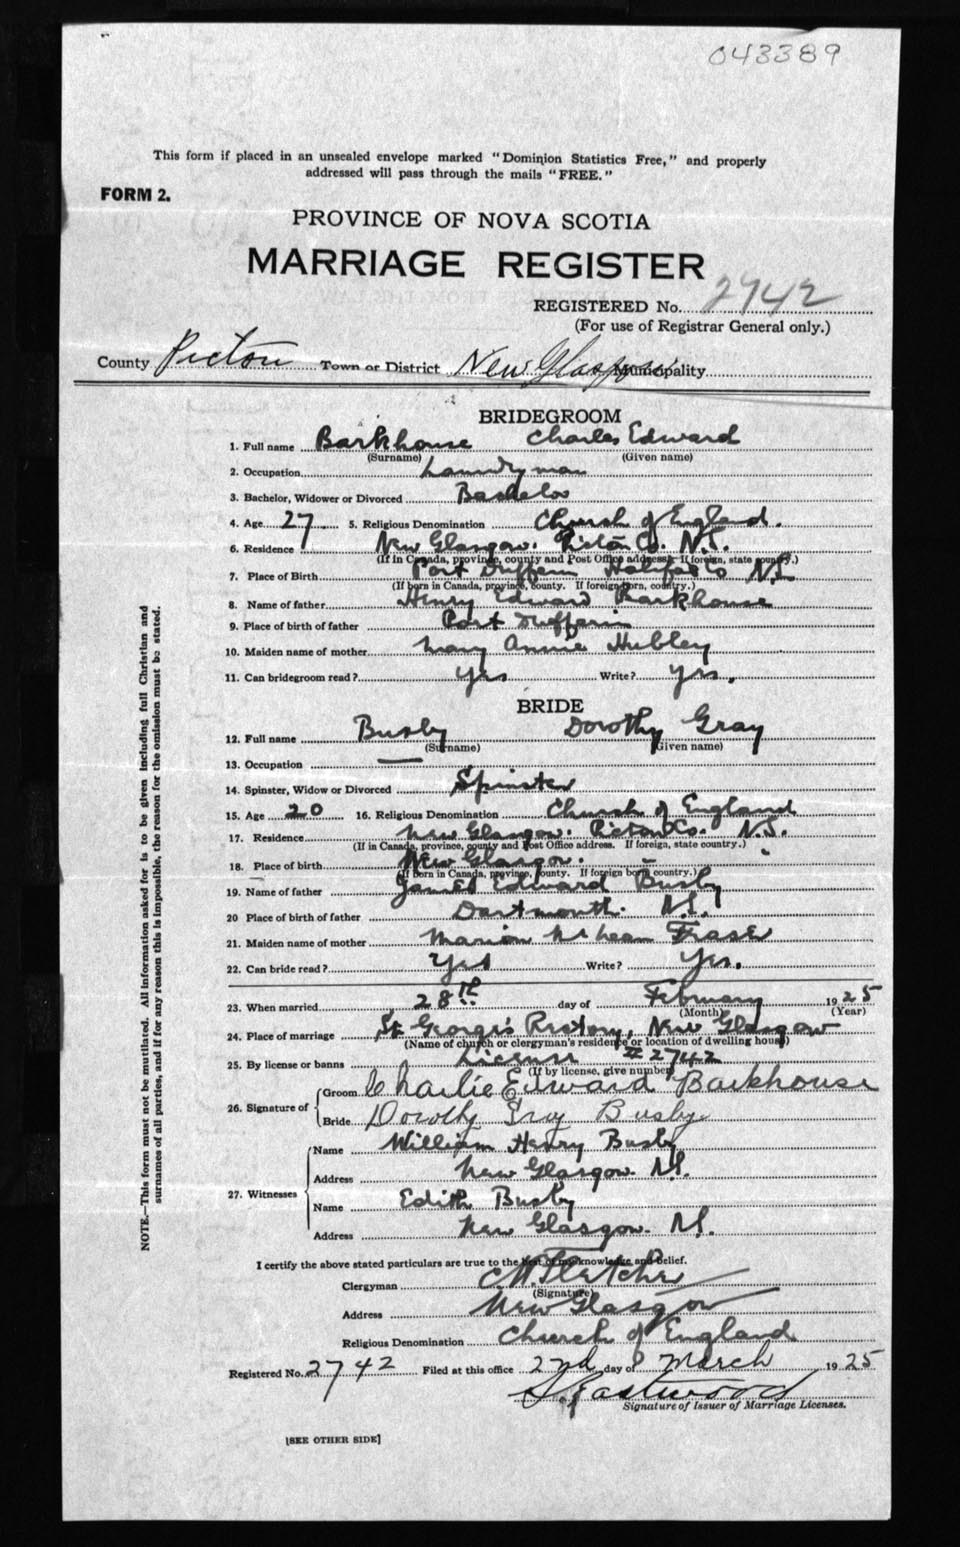 043389
This form if placed in an unsealed envelope marked "Dominion Statistics Free," and properly
addressed will pass through the mails "FREE."
FORM 2.
PROVINCE OF NOVA SCOTIA
MARRIAGE REGISTER
REGISTERED No. 2742
(For use of Registrar General only.)
County Pictou Town or District New Glasgow Municipality
BRIDEGROOM
1. Full name Barkhouse Charles Edward
(Surname) (Given name)
2. Occupation Laundryman
3. Bachelor, Widower or Divorced Bachelor
4. Age 27 5. Religious Denomination Church of England.
6. Residence New Glasgow. Pictou Co. N.S.
(If in Canada, province, county and Post Office address. If foreign, state country.)
7. Place of Birth Port Dufferin Halifax Co N.S.
(If born in Canada, province, county. If foreign born, country.)
8. Name of father Henry Edward Barkhouse
9. Place of birth of father Port Dufferin
10. Maiden name of mother Mary Annie Hubley
11. Can bridegroom read? Yes Write? Yes.
BRIDE
12. Full name Busby Dorothy Gray
(Surname) (Given name)
13. Occupation —
14. Spinster, Widow or Divorced Spinster
15. Age 20 16. Religious Denomination Church of England
17. Residence New Glasgow. Pictou Co. N.S.
(If in Canada, province, county and Post Office address. If foreign, state country.)
18. Place of birth New Glasgow.
(If born in Canada, province, county. If foreign born country.)
19. Name of father James Edward Busby
20 Place of birth of father Dartmouth. N.S.
21. Maiden name of mother Marion McLean Fraser
22. Can bride read? Yes Write? Yes.
23. When married 28th day of February 1925
(Month) (Year)
24. Place of marriage St George's Rectory, New Glasgow
(Name of church or clergyman's residence or location of dwelling house)
25. By license or banns License # 2742
(If by license, give number)
26. Signature of Groom Charlie Edward Barkhouse
Bride Dorothy Gray Busby
27. Witnesses Name William Henry Busby
Address New Glasgow N.S.
Name Edith Busby
Address New Glasgow. N.S.
I certify the above stated particulars are true to the best of my knowledge and belief.
Clergyman C M Fletcher
(Signature)
Address New Glasgow
Religious Denomination Church of England
Registered No. 2742 Filed at this office 2nd day of March 1925
Eastwood
Signature of Issuer of Marriage Licenses.
[SEE OTHER SIDE]
NOTE.—This form must not be mutilated. All information asked for is to be given including full Christian and
surnames of all parties, and if for any reason this is impossible, the reason for the omission must be stated.